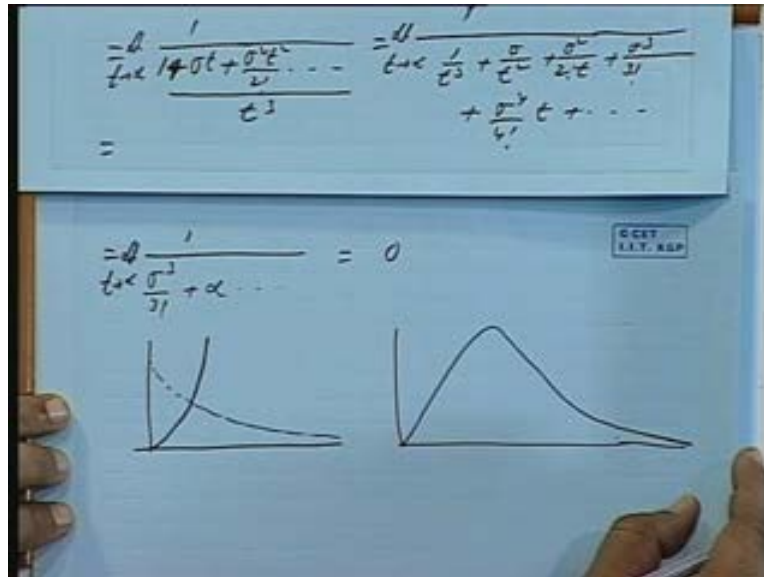 = lt t→∝ 1 / ((1+σt + σ²t²/2! ...) / t³) = lt t→∝ 1 / (1/t³ + σ/t² + σ²/2!t + σ³/3!
+ σ⁴/4! t + ...
=
= lt t→∝ 1 / (σ³/3! + ∝ ...) = 0
© CET
I.I.T. KGP